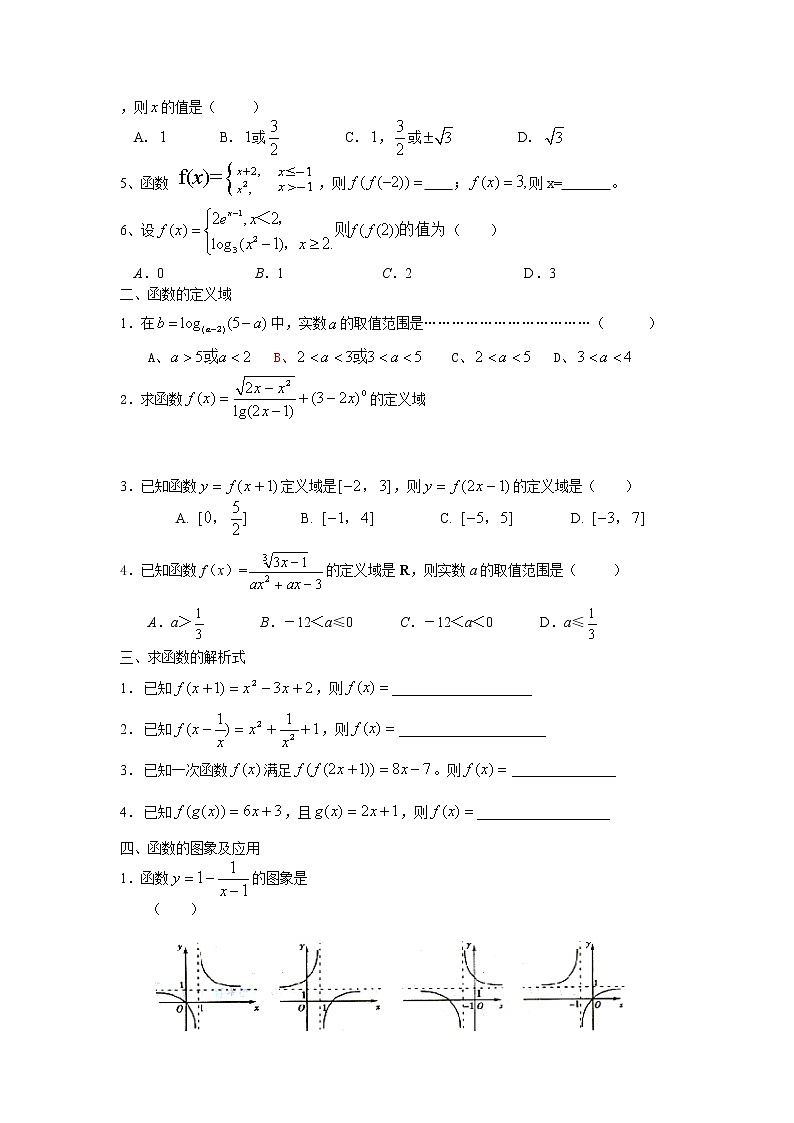 ,则x的值是( )
A. 1 B. 1或3/2 C. 1,3/2或±√3 D. √3
5、函数 f(x)={x+2, x≤-1; x², x>-1 ,则f(f(-2))=____;f(x)=3,则x=_______。
6、设f(x)={2e^(x-1),x<2, log₃(x²-1),x≥2. 则f(f(2))的值为( )
A.0 B.1 C.2 D.3
二、函数的定义域
1.在b=log_(a-2)(5-a)中,实数a的取值范围是………………………………( )
A、a>5或a<2 B、2<a<3或3<a<5 C、2<a<5 D、3<a<4
2.求函数f(x)=√(2x-x²)/lg(2x-1)+(3-2x)⁰的定义域
3.已知函数y=f(x+1)定义域是[-2,3],则y=f(2x-1)的定义域是( )
A. [0,5/2] B. [-1,4] C. [-5,5] D. [-3,7]
4.已知函数f(x)=∛(3x-1)/(ax²+ax-3)的定义域是R,则实数a的取值范围是( )
A.a>1/3 B.-12<a≤0 C.-12<a<0 D.a≤1/3
三、求函数的解析式
1. 已知f(x+1)=x²-3x+2,则f(x)=____________________
2. 已知f(x-1/x)=x²+1/x²+1,则f(x)=_____________________
3. 已知一次函数f(x)满足f(f(2x+1))=8x-7。则f(x)=_______________
4. 已知f(g(x))=6x+3,且g(x)=2x+1,则f(x)=___________________
四、函数的图象及应用
1.函数y=1-1/(x-1)的图象是
( )
y y y y
1 1 1 1
O 1 x O 1 x -1 O x -1 O x